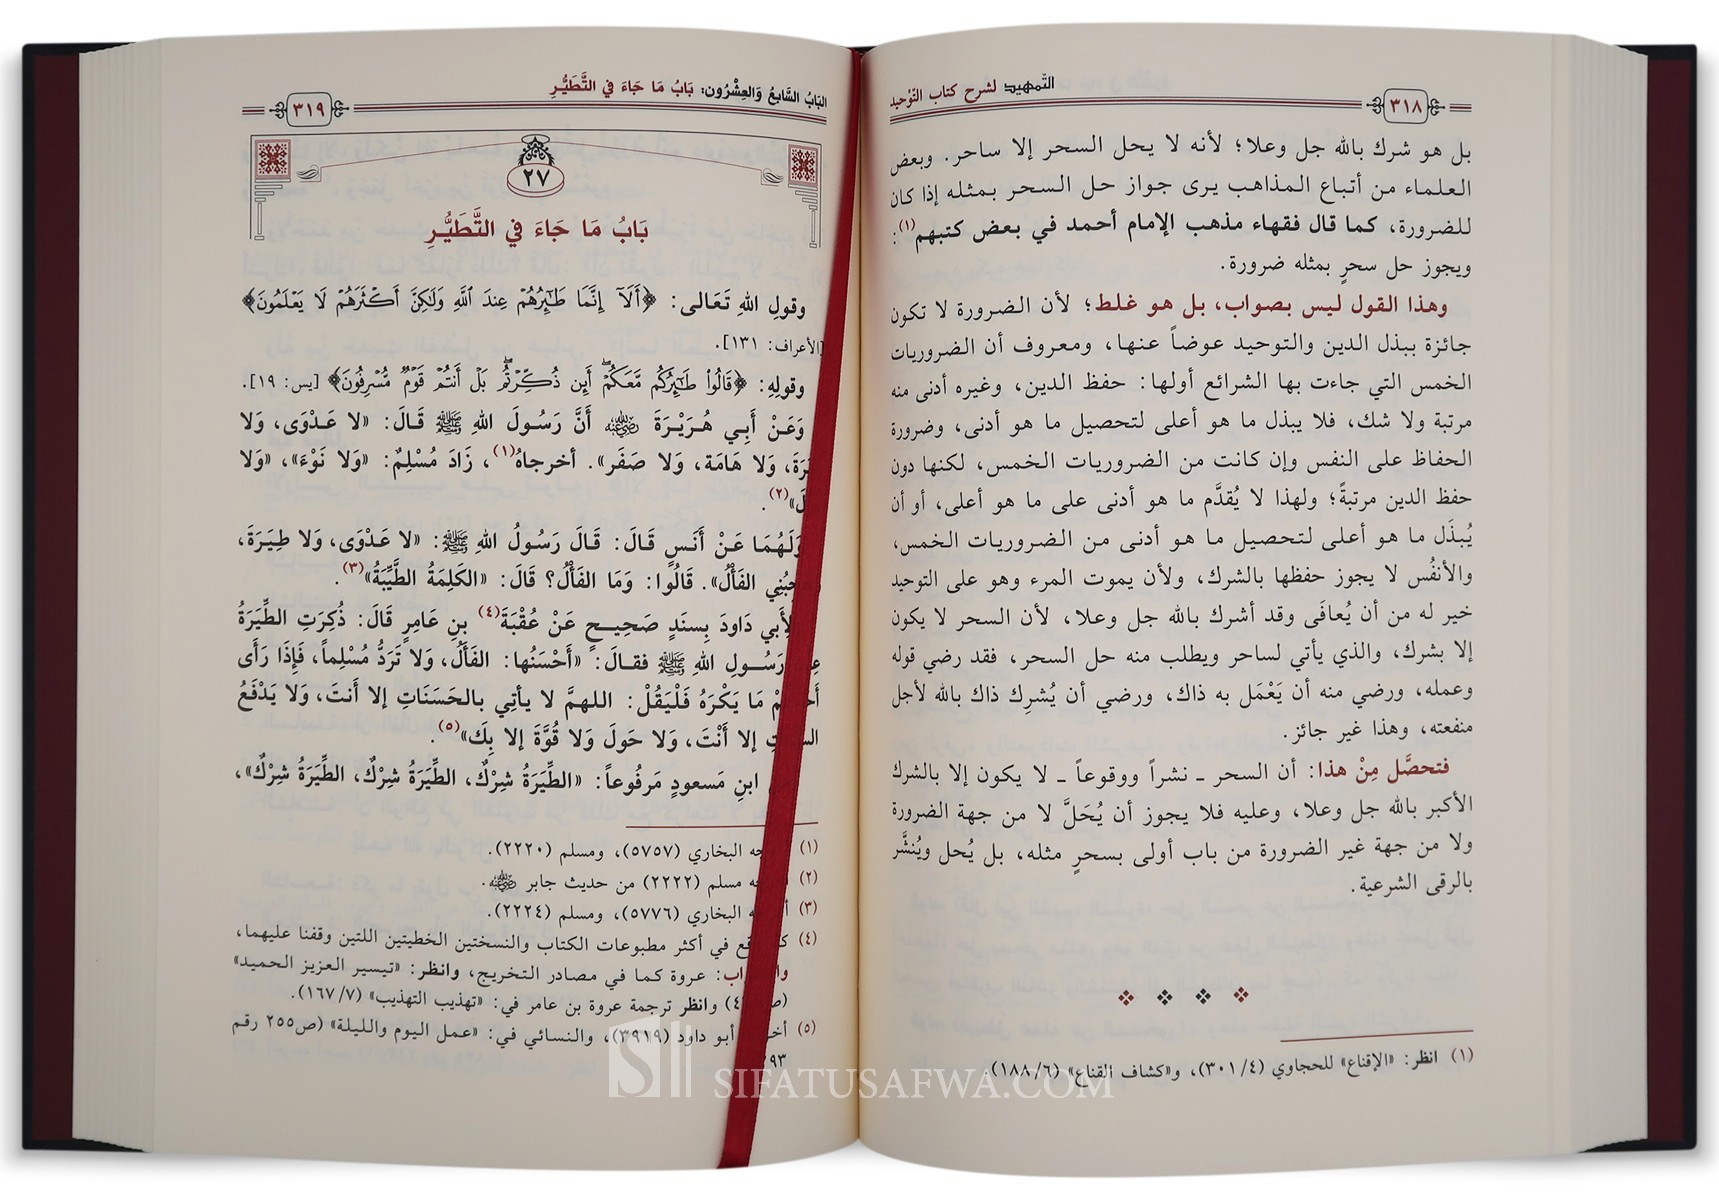 التمهيد لشرح كتاب التوحيد
٣١٨
بل هو شرك بالله جل وعلا؛ لأنه لا يحل السحر إلا ساحر. وبعض
العلماء من أتباع المذاهب يرى جواز حل السحر بمثله إذا كان
للضرورة، كما قال فقهاء مذهب الإمام أحمد في بعض كتبهم(١):
ويجوز حل سحرٍ بمثله ضرورة.
وهذا القول ليس بصواب، بل هو غلط؛ لأن الضرورة لا تكون
جائزة ببذل الدين والتوحيد عوضاً عنها، ومعروف أن الضروريات
الخمس التي جاءت بها الشرائع أولها: حفظ الدين، وغيره أدنى منه
مرتبة ولا شك، فلا يبذل ما هو أعلى لتحصيل ما هو أدنى، وضرورة
الحفاظ على النفس وإن كانت من الضروريات الخمس، لكنها دون
حفظ الدين مرتبةً؛ ولهذا لا يُقدَّم ما هو أدنى على ما هو أعلى، أو أن
يُبذَل ما هو أعلى لتحصيل ما هو أدنى من الضروريات الخمس،
والأنفُس لا يجوز حفظها بالشرك، ولأن يموت المرء وهو على التوحيد
خير له من أن يُعافَى وقد أشرك بالله جل وعلا، لأن السحر لا يكون
إلا بشرك، والذي يأتي لساحر ويطلب منه حل السحر، فقد رضي قوله
وعمله، ورضي منه أن يَعْمَل به ذاك، ورضي أن يُشرِك ذاك بالله لأجل
منفعته، وهذا غير جائز.
فتحصَّل مِنْ هذا: أن السحر ـ نشراً ووقوعاً ـ لا يكون إلا بالشرك
الأكبر بالله جل وعلا، وعليه فلا يجوز أن يُحَلَّ لا من جهة الضرورة
ولا من جهة غير الضرورة من باب أولى بسحرٍ مثله، بل يُحل ويُنشَّر
بالرقى الشرعية.
(١) انظر: «الإقناع» للحجاوي (٣٠١/٤)، و«كشاف القناع» (١٨٨/٦).
البَابُ السَّابِعُ وَالعِشْرُون: بَابُ مَا جَاءَ في التَّطَيُّرِ
٣١٩
٢٧
بَابُ مَا جَاءَ في التَّطَيُّرِ
وقولِ اللهِ تَعَالى: ﴿أَلَآ إِنَّمَا طَـٰٓئِرُهُمۡ عِندَ ٱللَّهِ وَلَـٰكِنَّ أَكۡثَرَهُمۡ لَا يَعۡلَمُونَ﴾
[الأعراف: ١٣١].
وقولِهِ: ﴿قَالُوا۟ طَـٰٓئِرُكُم مَّعَكُمۡ أَئِن ذُكِّرۡتُم بَلۡ أَنتُمۡ قَوۡمٌ مُّسۡرِفُونَ﴾ [يس: ١٩].
وَعَنْ أَبِي هُرَيْرَةَ رضي الله عنه أَنَّ رَسُولَ اللهِ ﷺ قَالَ: «لا عَدْوَى، وَلا
وَلا هَامَة، وَلا صَفَر». أخرجاهُ(١)، زَادَ مُسْلِمٌ: «وَلا نَوْءَ»، «وَلا
(٢).
وَلَهُمَا عَنْ أَنَسٍ قَالَ: قَالَ رَسُولُ اللهِ ﷺ: «لا عَدْوَى، وَلا طِيَرَةَ،
الفَأْلُ». قَالُوا: وَمَا الفَأْلُ؟ قَالَ: «الكَلِمَةُ الطَّيِّبَةُ»(٣).
لأَبي دَاودَ بِسنَدٍ صَحِيحٍ عَنْ عُقْبَةَ(٤) بنِ عَامِرٍ قَالَ: ذُكِرَتِ الطِّيَرَةُ
رَسُولِ اللهِ ﷺ فقالَ: «أَحْسَنُها: الفَأْلُ، وَلا تَرَدُّ مُسْلِماً، فَإِذَا رَأَى
مَا يَكْرَهُ فَلْيَقُلْ: اللهمَّ لا يأتِي بالحَسَنَاتِ إلا أَنتَ، وَلا يَدْفَعُ
إلا أَنْتَ، وَلا حَولَ وَلا قُوَّةَ إلا بِكَ»(٥).
ابنِ مَسعودٍ مَرفُوعاً: «الطِّيَرَةُ شِركٌ، الطِّيَرَةُ شِركٌ، الطِّيَرَةُ شِركٌ»،
(١) البخاري (٥٧٥٧)، ومسلم (٢٢٢٠).
(٢) مسلم (٢٢٢٢) من حديث جابر رضي الله عنه.
(٣) البخاري (٥٧٧٦)، ومسلم (٢٢٢٤).
(٤) في أكثر مطبوعات الكتاب والنسختين الخطيتين اللتين وقفنا عليهما،
عروة كما في مصادر التخريج، وانظر: «تيسير العزيز الحميد»
وانظر ترجمة عروة بن عامر في: «تهذيب التهذيب» (١٦٧/٧).
(٥) أبو داود (٣٩١٩)، والنسائي في: «عمل اليوم والليلة» (ص٢٥٥ رقم
SIFATUSAFWA.COM